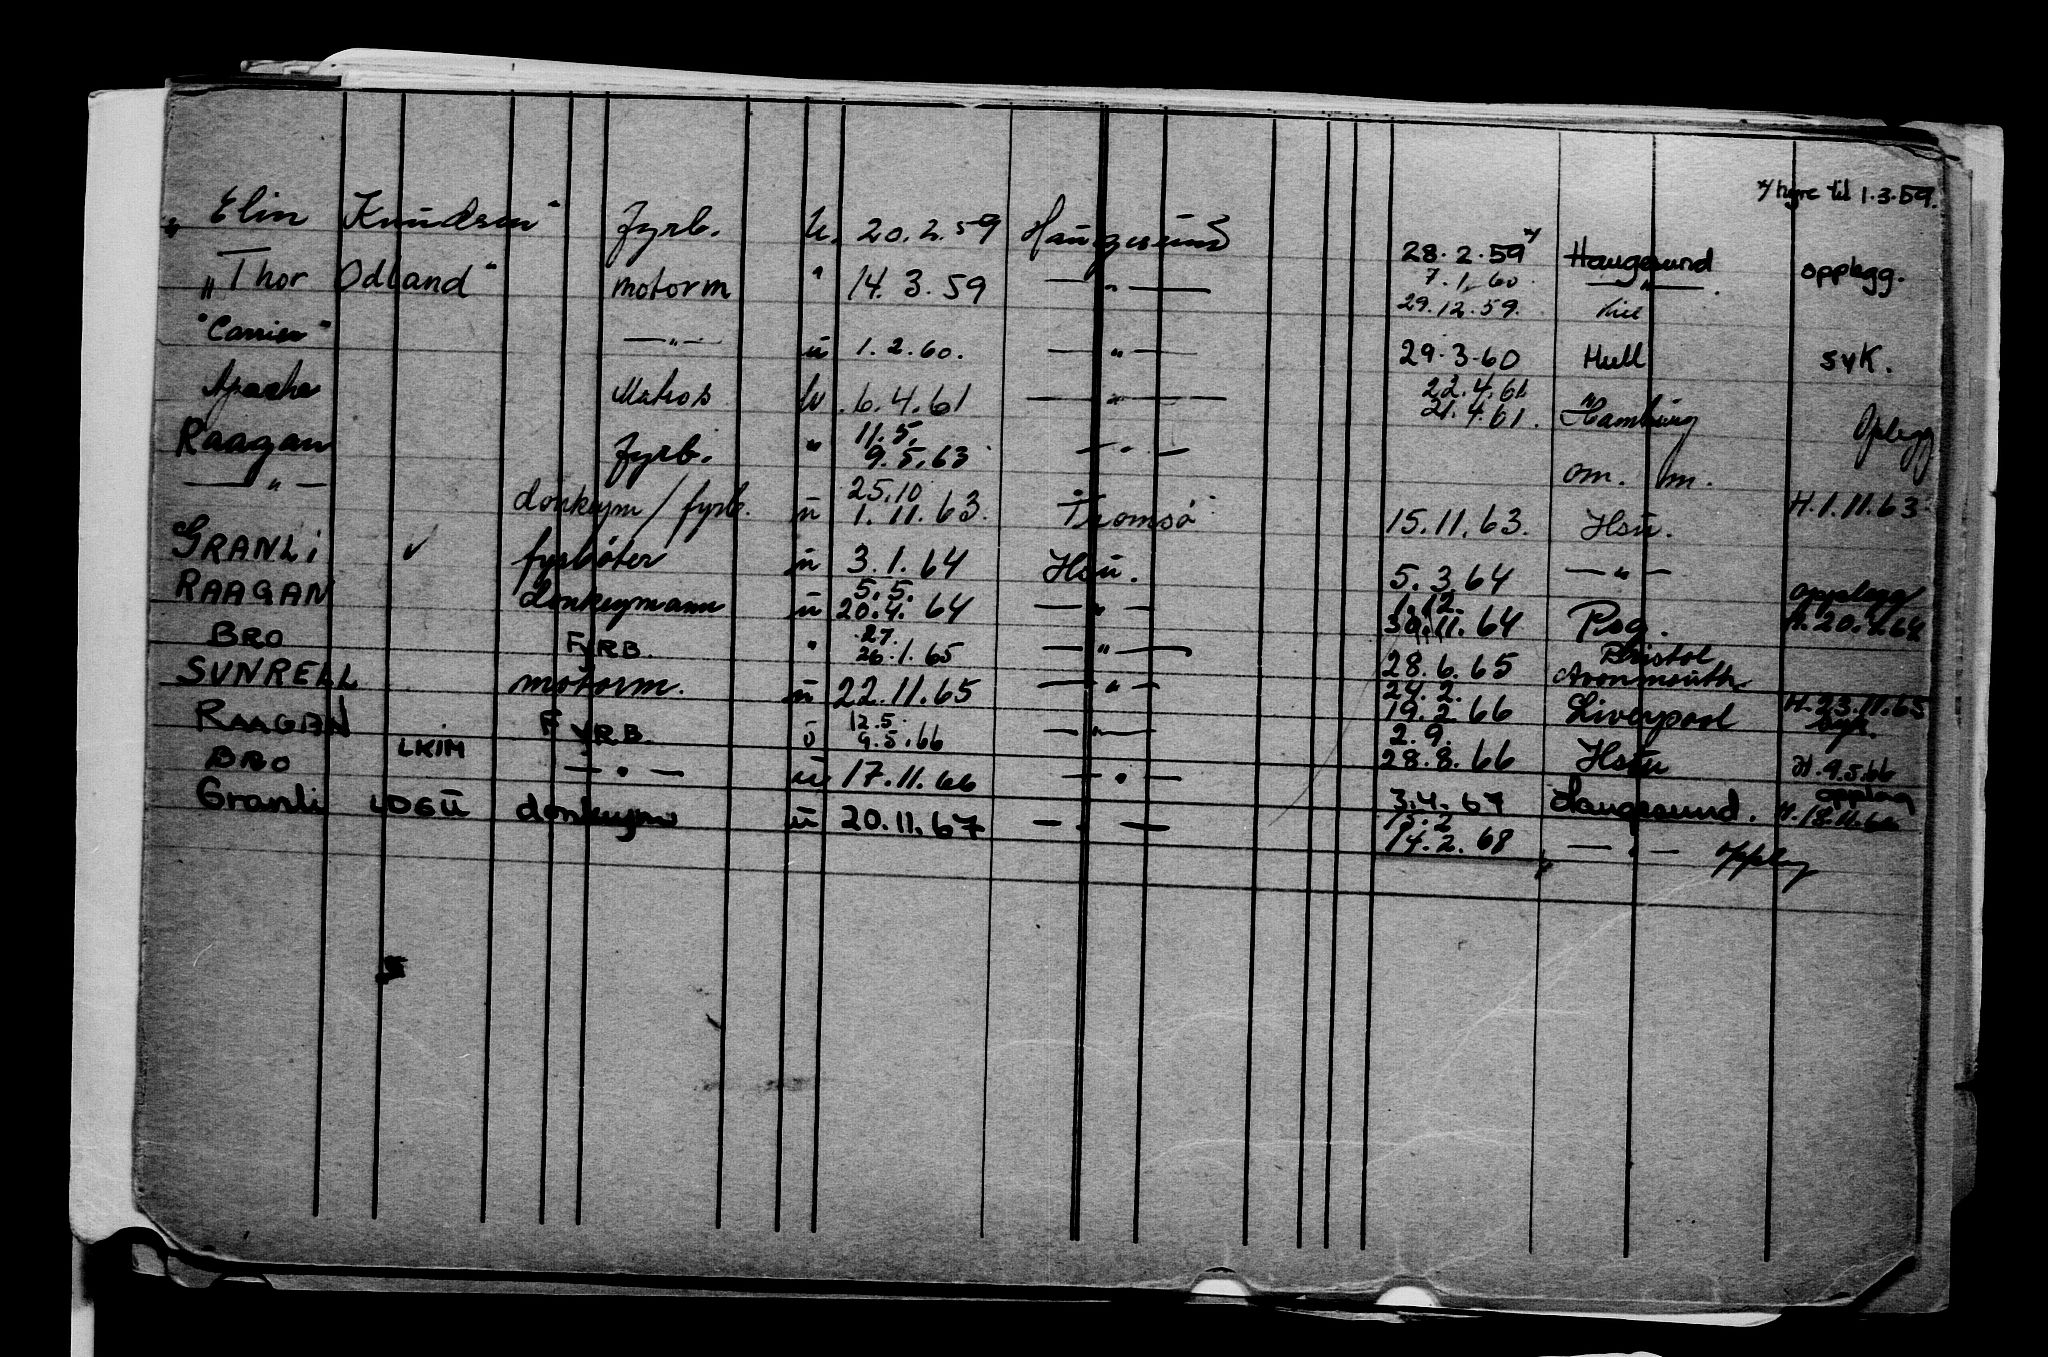 x/ hyre til 1.3.59.
"Elin Knudsen" fyrb. u. 20.2.59 Haugesund 28.2.59 x/ Haugesund opplegg.
"Thor Odland" motorm " 14.3.59 — " — 7.1.60 — " —
29.12.59. Kiel
"Carrier" — " — u 1.2.60. — " — 29.3.60 Hull syk.
Apache Matros u 6.4.61 — " — 22.4.61 "
21.4.61. Hamburg Oplegg
Raagan fyrb. " 11.5.
9.5.63 — " — om. m.
— " — donkeym / fyrb. u 25.10
1.11.63. Tromsø 15.11.63. Hsu. H.1.11.63
GRANLi ✓ fyrbøter u 3.1.64 Hsu. 5.3.64 — " — opplegg
RAAGAN donkeymann u 5.5.
20.4.64 — " — 1.12.
30.11.64 Psg. H.20.4.64
BRO FYRB. " 27.
26.1.65 — " — 28.6.65 Bristol
Avonmouth
SUNRELL motorm. u 22.11.65 — " — 24.2.
19.2.66 Liverpool H.23.11.65
syk.
RAAGAN FYRB. u 12.5.
9.5.66 — " — 2.9.
28.8.66 Hsu H.9.5.66
opplag
BRO LKIM — " — u 17.11.66 — " — 3.4.67 Haugesund. H.18.11.66
Granli LDGU donkeym u 20.11.67 — " — 15.2
14.2.68 — " — Oppleg